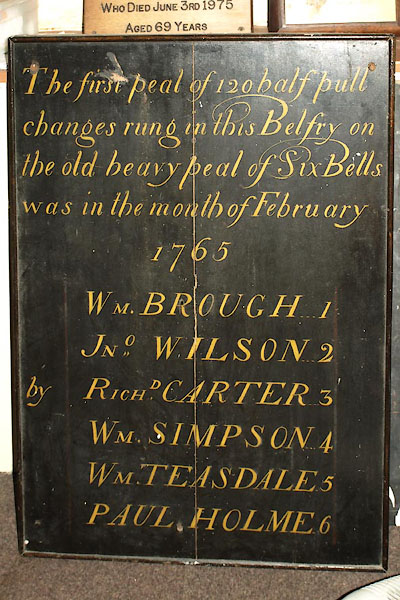 WHO DIED JUNE 3RD 1975
AGED 69 YEARS
The first peal of 120 half pull
changes rung in this Belfry on
the old heavy peal of Six Bells
was in the month of February
1765
WM. BROUGH 1
JNO. WILSON 2
by RICHD. CARTER 3
WM. SIMPSON 4
WM. TEASDALE 5
PAUL HOLME 6